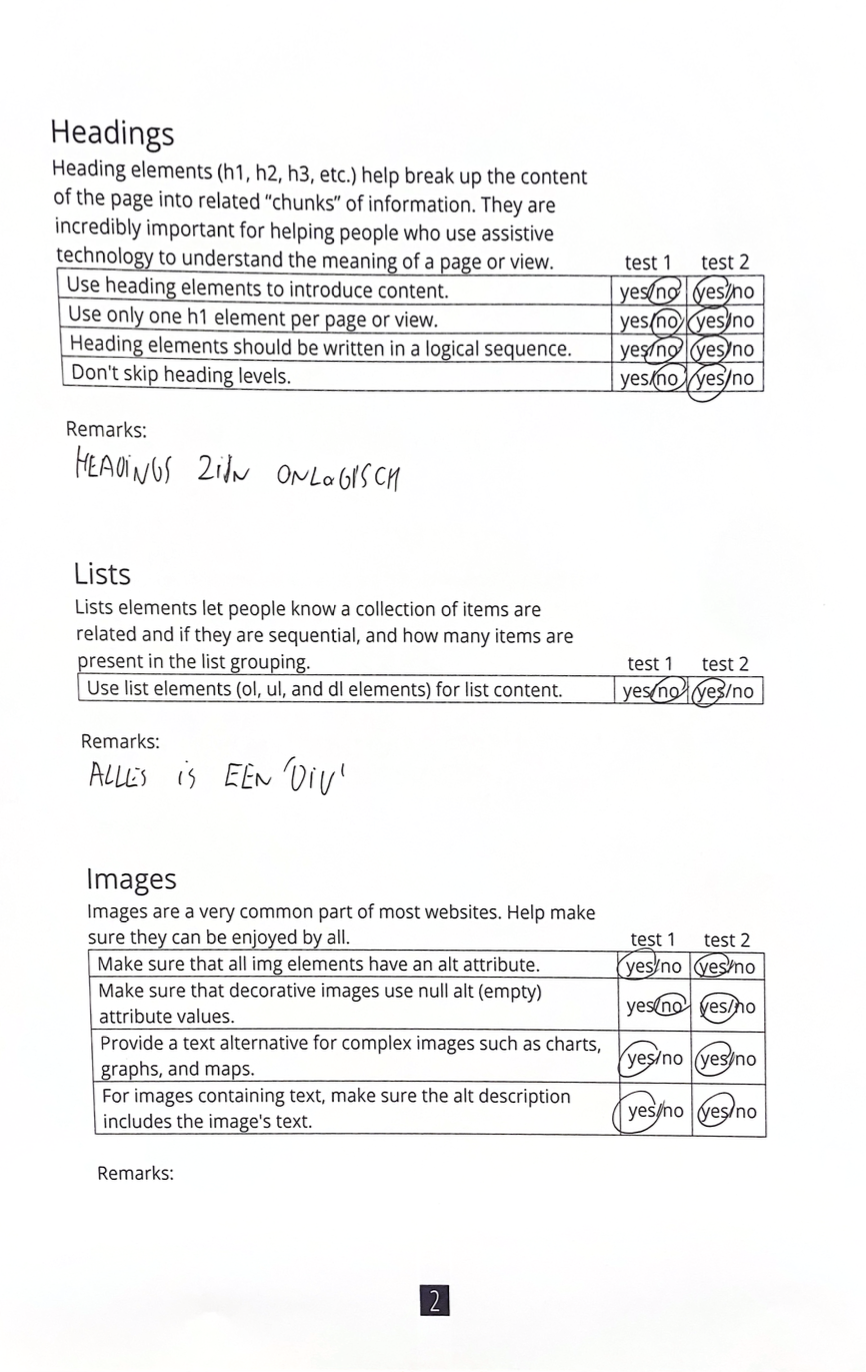 Headings
Heading elements (h1, h2, h3, etc.) help break up the content
of the page into related “chunks” of information. They are
incredibly important for helping people who use assistive
technology to understand the meaning of a page or view. test 1 test 2
Use heading elements to introduce content. yes/no yes/no
Use only one h1 element per page or view. yes/no yes/no
Heading elements should be written in a logical sequence. yes/no yes/no
Don't skip heading levels. yes/no yes/no
Remarks:
HEADiNGS ZiJN ONLOGISCH
Lists
Lists elements let people know a collection of items are
related and if they are sequential, and how many items are
present in the list grouping. test 1 test 2
Use list elements (ol, ul, and dl elements) for list content. yes/no yes/no
Remarks:
ALLES iS EEN 'DiV'
Images
Images are a very common part of most websites. Help make
sure they can be enjoyed by all. test 1 test 2
Make sure that all img elements have an alt attribute. yes/no yes/no
Make sure that decorative images use null alt (empty)
attribute values. yes/no yes/no
Provide a text alternative for complex images such as charts,
graphs, and maps. yes/no yes/no
For images containing text, make sure the alt description
includes the image's text. yes/no yes/no
Remarks:
2